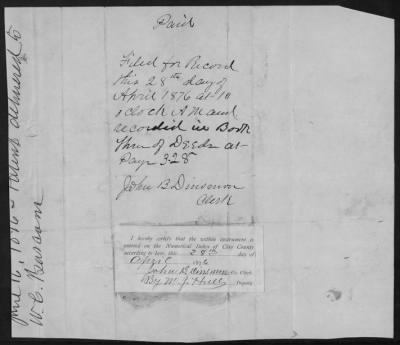 Paid
Filed for Record
this 28th day of
April 1876 at 10
o'clock A M and
recorded in Book
Three of Deeds at
Page 328
John B Dinsmore
Clerk
I hereby certify that the within instrument is
entered on the Numerical Index of Clay County
according to law, this 28th day of
April 1876
John B Dinsmore Clerk
By W. J. Hull Deputy
June 16, 1876 - Patent delivered to
W. C.